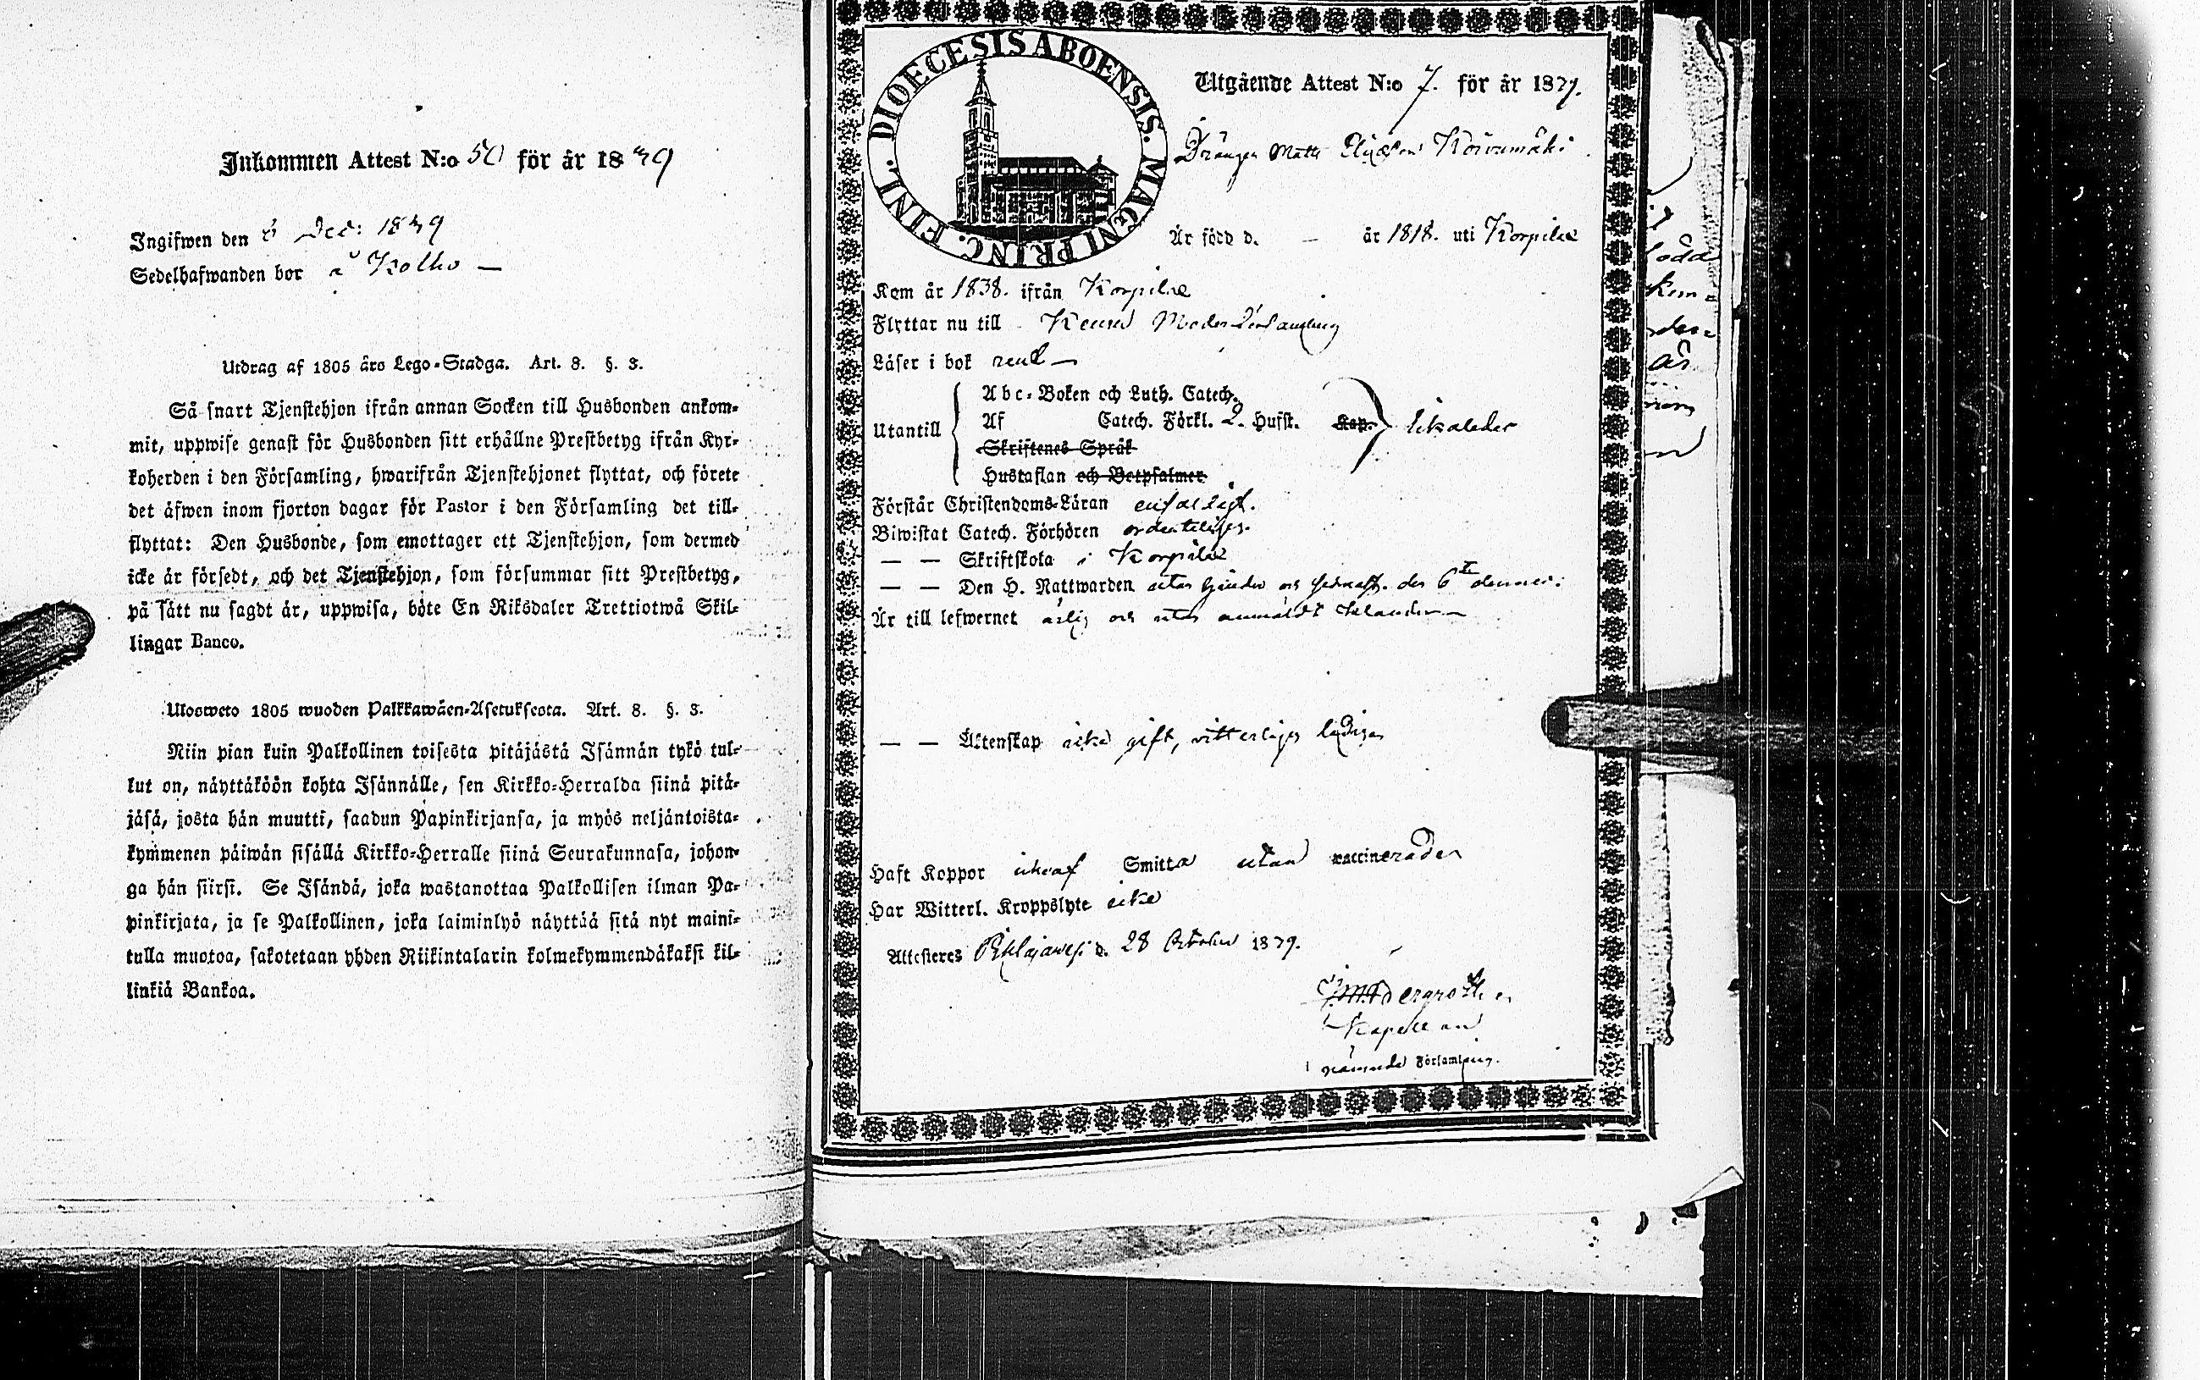 Inkommen Attest N:o 50 för år 1839
Ingifwen den 8 Dec: 1839
Sedelhafwanden bor å Kolho —
Utdrag af 1805 års Lego-Stadga. Art. 8. §. 3.
Så snart Tjenstehjon ifrån annan Socken till Husbonden ankom-
mit, uppwise genast för Husbonden sitt erhållne Prestbetyg ifrån Kyr-
koherden i den Församling, hwarifrån Tjenstehjonet flyttat, och förete
det äfwen inom fjorton dagar för Pastor i den Församling det till-
flyttat: Den Husbonde, som emottager ett Tjenstehjon, som dermed
icke är försedt, och det Tjenstehjon, som försummar sitt Prestbetyg,
på sätt nu sagdt är, uppwisa, böte En Riksdaler Trettiotwå Skil-
lingar Banco.
Uloswetto 1805 wuoden Palkkawäen-Asetuksesta. Art. 8. §. 3.
Niin pian kuin Palkollinen toisesta pitäjästä Isännän tykö tul-
lut on, näyttäköön kohta Isännälle, sen Kirkko-Herralda siinä pitä-
jäsä, josta hän muutti, saadun Papinkirjansa, ja myös neljäntoista-
kymmenen päiwän sisällä Kirkko-Herralle siinä Seurakunnasa, johon-
ga hän siirsi. Se Isändä, joka wastanottaa Palkollisen ilman Pa-
pinkirjata, ja se Palkollinen, joka laiminlyö näyttää sitä nyt maini-
tulla muotoa, sakotetaan yhden Riikintalarin kolmekymmendäkaksi kil-
linkiä Bankoa.
DIOECESIS ABOENSIS. MAGNI PRINC. FINL.
Utgående Attest N:o 7. för år 1839.
Drängen Matts Koivumäki
Är född d. — år 1818. uti Korpilax
Kom år 1838. ifrån Korpilax
Flyttar nu till Keuru Moder Församling
Läser i bok rent —
Utantill
Abc-Boken och Luth. Catech.
Af Catech. Förkl. 2. Hufst. Kap.
Skriftenes Språk
Hustaflan och Botpsalmer
Förstår Christendoms-Läran enfaldigt.
Biwistat Catech. Förhören ordenteligen.
— — Skriftskola i Korpilax
— — Den H. Nattwarden utan hinder och sednast. den 6
Är till lefwernet ärlig och utan anmäldt klander —
— — Äktenskap icke gift, vitterligen ledig
Haft Koppor Smitta utan vaccinerader
Har Witterl. Kroppslyte icke
Attesteras d. 28 October 1839.
Kapellan
i nämnde Församling.